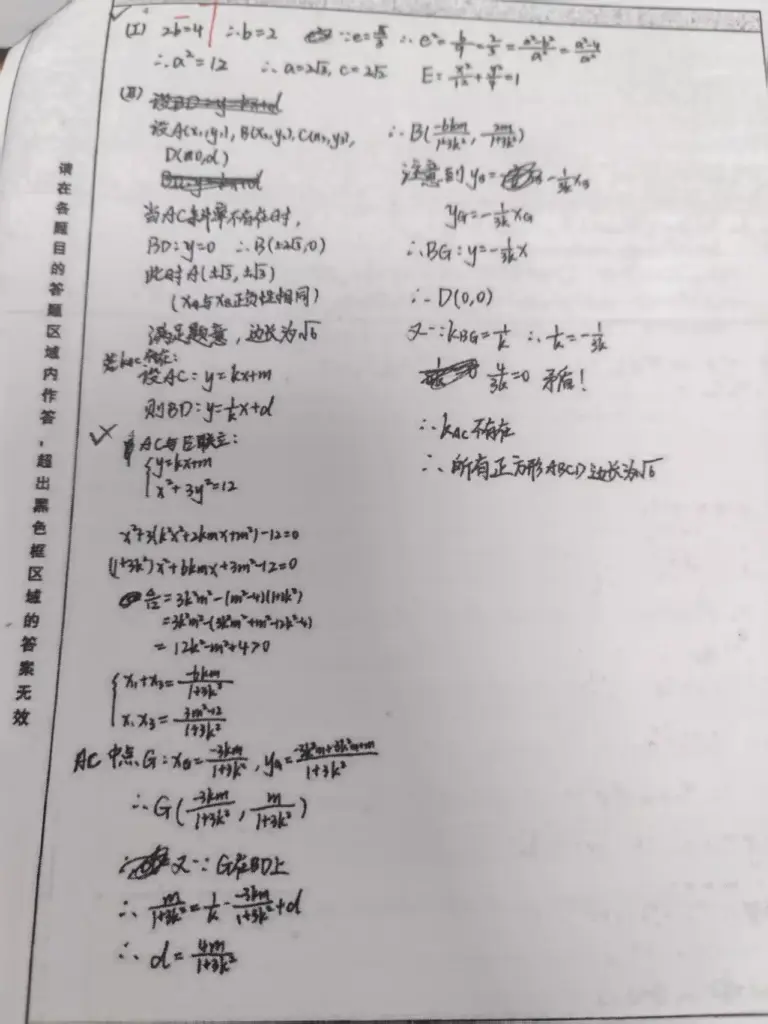 请在各题目的答题区域内作答，超出黑色框区域的答案无效
(I) 2b=4 ∴b=2 ∵e=√6/3 ∴e²=6/9=2/3=(a²-b²)/a²=(a²-4)/a²
∴a²=12 ∴a=2√3, c=2√2 E=x²/12+y²/4=1
(II)
设A(x₁,y₁), B(x₂,y₂), C(x₃,y₃),
D(0,d)
当AC斜率不存在时,
BD:y=0 ∴B(±2√3,0)
此时A(±√3,±√3)
(x_A与x_B正负性相同)
满足题意,边长为√6
若k_AC存在:
设AC:y=kx+m
则BD:y=1/k x+d
AC与E联立:
{y=kx+m
x²+3y²=12
x²+3(k²x²+2kmx+m²)-12=0
(1+3k²)x²+6kmx+3m²-12=0
Δ/12=3k²m²-(m²-4)(1+3k²)
=3k²m²-(3k²m²+m²-12k²-4)
=12k²-m²+4>0
{x₁+x₃=-6km/(1+3k²)
x₁x₃=(3m²-12)/(1+3k²)
AC中点G:x_G=-3km/(1+3k²), y_G=(-3k²m+3k²m+m)/(1+3k²)
∴G(-3km/(1+3k²), m/(1+3k²))
又∵G在BD上
∴m/(1+3k²)=1/k·-3km/(1+3k²)+d
∴d=4m/(1+3k²)
∴B(-6km/(1+3k²), 2m/(1+3k²))
注意到y_B=-1/3k x_B
y_G=-1/3k x_G
∴BG:y=-1/3k x
∴D(0,0)
又∵k_BG=1/k ∴1/k=-1/3k
4/3k=0 矛盾!
∴k_AC不存在
∴所有正方形ABCD边长为√6